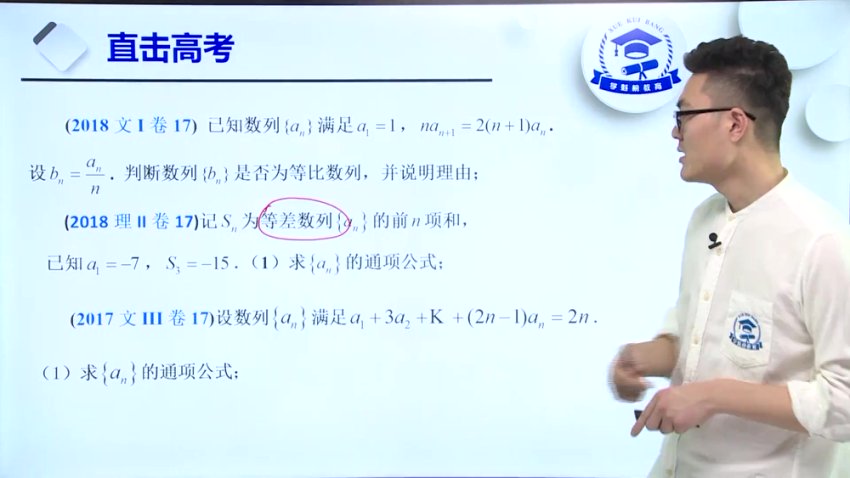 直击高考
XUE KUI BANG
学魁榜教育
(2018 文 I 卷 17) 已知数列{aₙ}满足a₁=1，naₙ₊₁=2(n+1)aₙ.
设bₙ=aₙ/n. 判断数列{bₙ}是否为等比数列，并说明理由；
(2018 理 II 卷 17)记Sₙ为等差数列{aₙ}的前n项和，
已知a₁=–7，S₃=–15.（1）求{aₙ}的通项公式；
(2017 文 III 卷 17)设数列{aₙ}满足a₁+3a₂+K+(2n–1)aₙ=2n.
（1）求{aₙ}的通项公式；